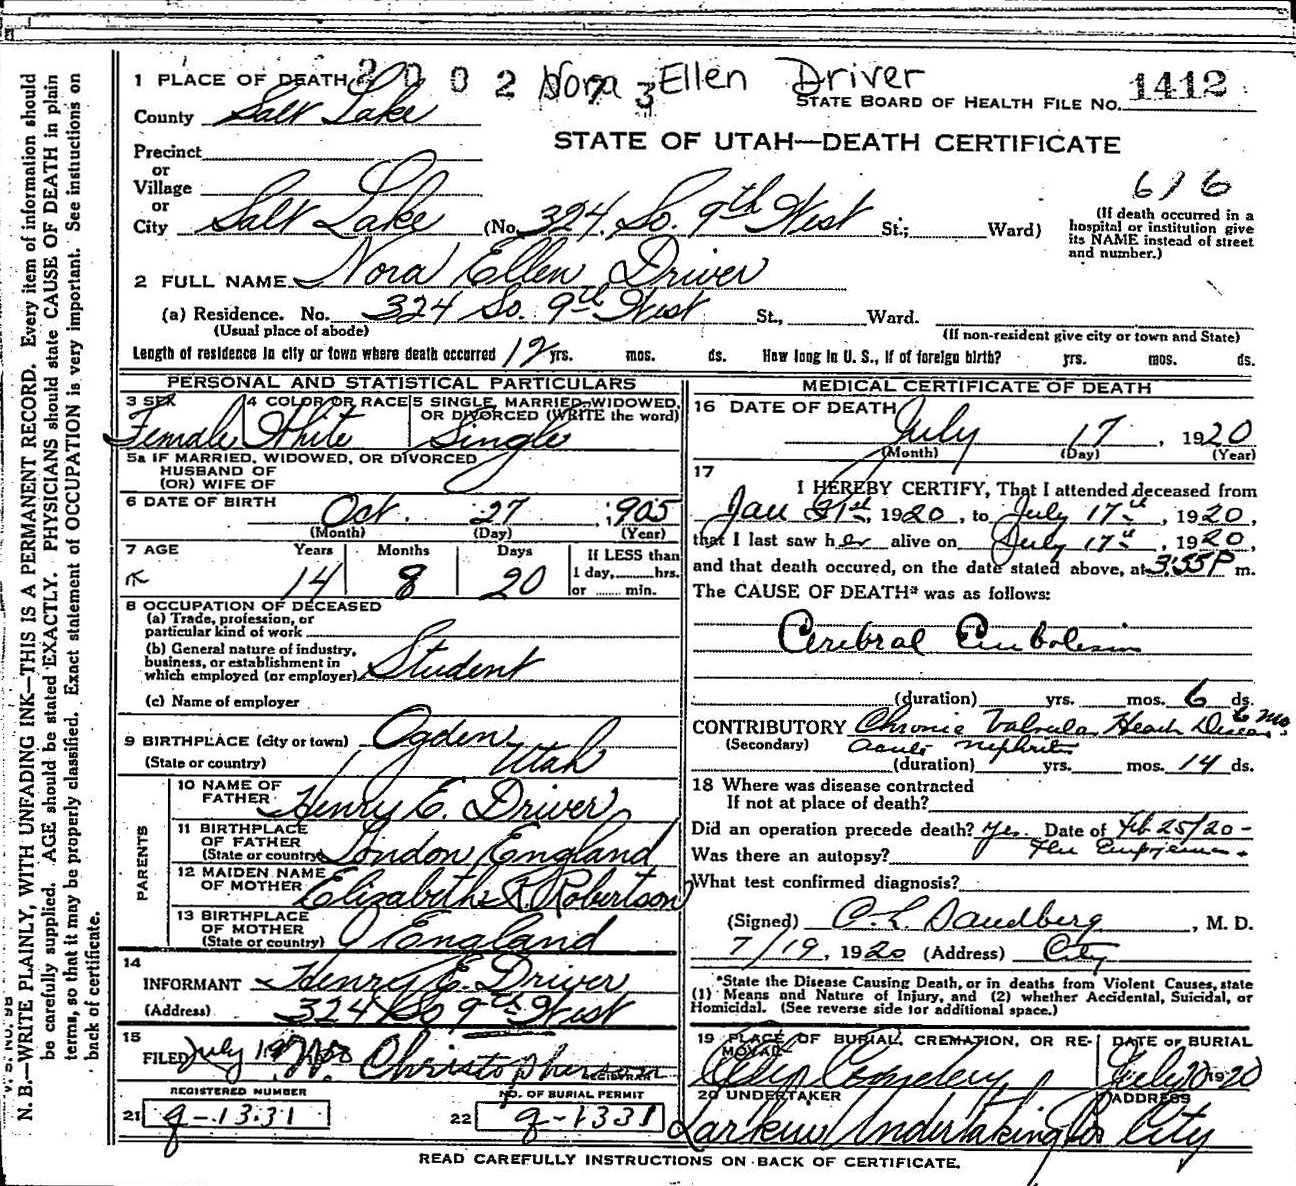 1 PLACE OF DEATH 2 0 0 2 Nora Ellen Driver 3
County Salt Lake STATE BOARD OF HEALTH FILE NO. 1412
STATE OF UTAH—DEATH CERTIFICATE
Precinct
or
Village
or
City Salt Lake (No. 324 So. 9th West St.; Ward)
616
(If death occurred in a
hospital or institution give
its NAME instead of street
and number.)
2 FULL NAME Nora Ellen Driver
(a) Residence. No. 324 So. 9th West St., Ward.
(Usual place of abode) (If non-resident give city or town and State)
Length of residence in city or town where death occurred 12 yrs. mos. ds. How long in U. S., if of foreign birth? yrs. mos. ds.
PERSONAL AND STATISTICAL PARTICULARS
3 SEX 4 COLOR OR RACE 5 SINGLE, MARRIED, WIDOWED,
OR DIVORCED (WRITE the word)
Female White Single
5a IF MARRIED, WIDOWED, OR DIVORCED
HUSBAND OF
(OR) WIFE OF
6 DATE OF BIRTH
Oct. 27 1905
(Month) (Day) (Year)
7 AGE Years Months Days If LESS than
1 day, hrs.
14 8 20 or min.
8 OCCUPATION OF DECEASED
(a) Trade, profession, or
particular kind of work
(b) General nature of industry,
business, or establishment in
which employed (or employer) Student
(c) Name of employer
9 BIRTHPLACE (city or town) Ogden
(State or country) Utah
PARENTS
10 NAME OF
FATHER Henry E. Driver
11 BIRTHPLACE
OF FATHER
(State or country) London England
12 MAIDEN NAME
OF MOTHER Elizabeth R. Robertson
13 BIRTHPLACE
OF MOTHER
(State or country) England
14
INFORMANT Henry E. Driver
(Address) 324 So 9th West
15
FILED July 19 Christopherson
REGISTRAR
REGISTERED NUMBER NO. OF BURIAL PERMIT
21 g-1331 22 g-1331
MEDICAL CERTIFICATE OF DEATH
16 DATE OF DEATH
July 17, 1920
(Month) (Day) (Year)
17
I HEREBY CERTIFY, That I attended deceased from
Jan 21st, 1920, to July 17th, 1920,
that I last saw her alive on July 17th, 1920,
and that death occured, on the date stated above, at 3:55P m.
The CAUSE OF DEATH* was as follows:
Cerebral Embolism
(duration) yrs. mos. 6 ds.
CONTRIBUTORY Chronic Valvular Heart Disease 6 mo
(Secondary) acute nephritis
(duration) yrs. mos. 14 ds.
18 Where was disease contracted
If not at place of death?
Did an operation precede death? Yes. Date of Feb 25/20 -
Was there an autopsy? For Empyema.
What test confirmed diagnosis?
(Signed) C. L. Sandberg, M. D.
7/19, 1920 (Address) City
*State the Disease Causing Death, or in deaths from Violent Causes, state
(1) Means and Nature of Injury, and (2) whether Accidental, Suicidal, or
Homicidal. (See reverse side for additional space.)
19 PLACE OF BURIAL, CREMATION, OR RE-
MOVAL DATE OF BURIAL
City Cemetery July 20 1920
20 UNDERTAKER ADDRESS
Larkin Undertaking Co City
READ CAREFULLY INSTRUCTIONS ON BACK OF CERTIFICATE.
V. S. NO. 98
N. B.—WRITE PLAINLY, WITH UNFADING INK—THIS IS A PERMANENT RECORD. Every item of information should
be carefully supplied. AGE should be stated EXACTLY. PHYSICIANS should state CAUSE OF DEATH in plain
terms, so that it may be properly classified. Exact statement of OCCUPATION is very important. See instructions on
back of certificate.